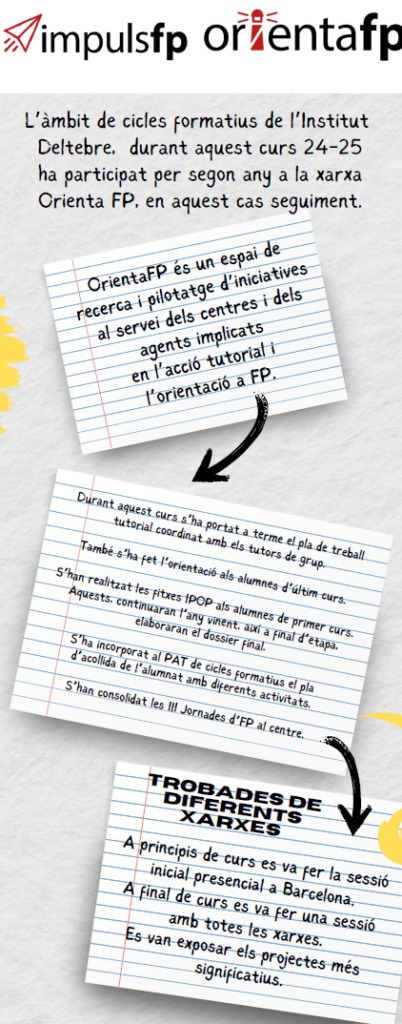 impulsfp orientafp
L'àmbit de cicles formatius de l'Institut
Deltebre, durant aquest curs 24-25
ha participat per segon any a la xarxa
Orienta FP, en aquest cas seguiment.
OrientaFP és un espai de
recerca i pilotatge d'iniciatives
al servei dels centres i dels
agents implicats
en l'acció tutorial i
l'orientació a FP.
Durant aquest curs s'ha portat a terme el pla de treball
tutorial coordinat amb els tutors de grup.
També s'ha fet l'orientació als alumnes d'últim curs.
S'han realitzat les fitxes IPOP als alumnes de primer curs.
Aquests, continuaran l'any vinent, així a final d'etapa,
elaboraran el dossier final.
S'ha incorporat al PAT de cicles formatius el pla
d'acollida de l'alumnat amb diferents activitats.
S'han consolidat les III Jornades d'FP al centre.
TROBADES DE
DIFERENTS
XARXES
A principis de curs es va fer la sessió
inicial presencial a Barcelona.
A final de curs es va fer una sessió
amb totes les xarxes.
Es van exposar els projectes més
significatius.